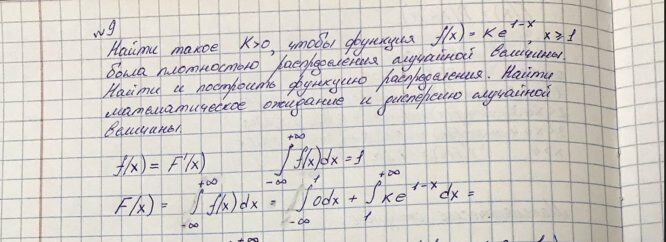 №9
Найти такое K>0, чтобы функция f(x) = Ke^{1-x}, x⩾1
была плотностью распределения случайной величины.
Найти и построить функцию распределения. Найти
математическое ожидание и дисперсию случайной
величины.
f(x) = F'(x) ∫_{-∞}^{+∞} f(x)dx = 1
F(x) = ∫_{-∞}^{+∞} f(x)dx = ∫_{-∞}^{1} 0dx + ∫_{1}^{+∞} Ke^{1-x} dx =